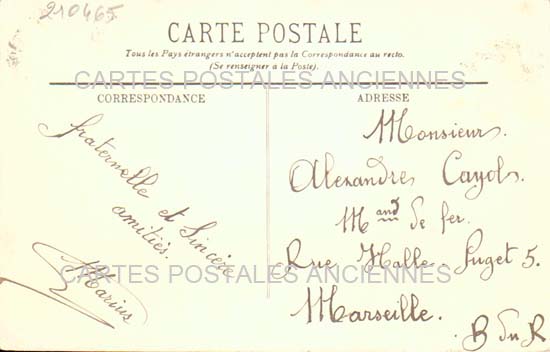 210465
CARTE POSTALE
Tous les Pays étrangers n'acceptent pas la Correspondance au recto.
(Se renseigner à la Poste).
CARTES POSTALES ANCIENNES
CORRESPONDANCE
fraternelle et Sincère
amitiés.
Marius
ADRESSE
Monsieur.
Alexandre Cayol.
Mand de fer.
Rue Halle-Puget 5.
CARTES POSTALES ANCIENNES
Marseille.
B du R